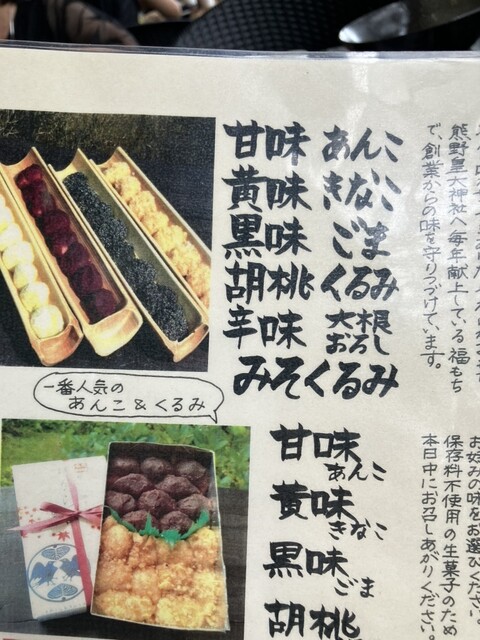 甘味 あんこ
黄味 きなこ
黒味 ごま
胡桃 くるみ
辛味 大根おろし
みそくるみ
熊野皇大神社へ毎年献上している福もち
で、創業からの味を守りつづけています。
一番人気の
あんこ&くるみ
甘味あんこ
黄味きなこ
黒味ごま
胡桃
お好みの味をお選びください。
保存料不使用の生菓子のため
本日中にお召しあがりください